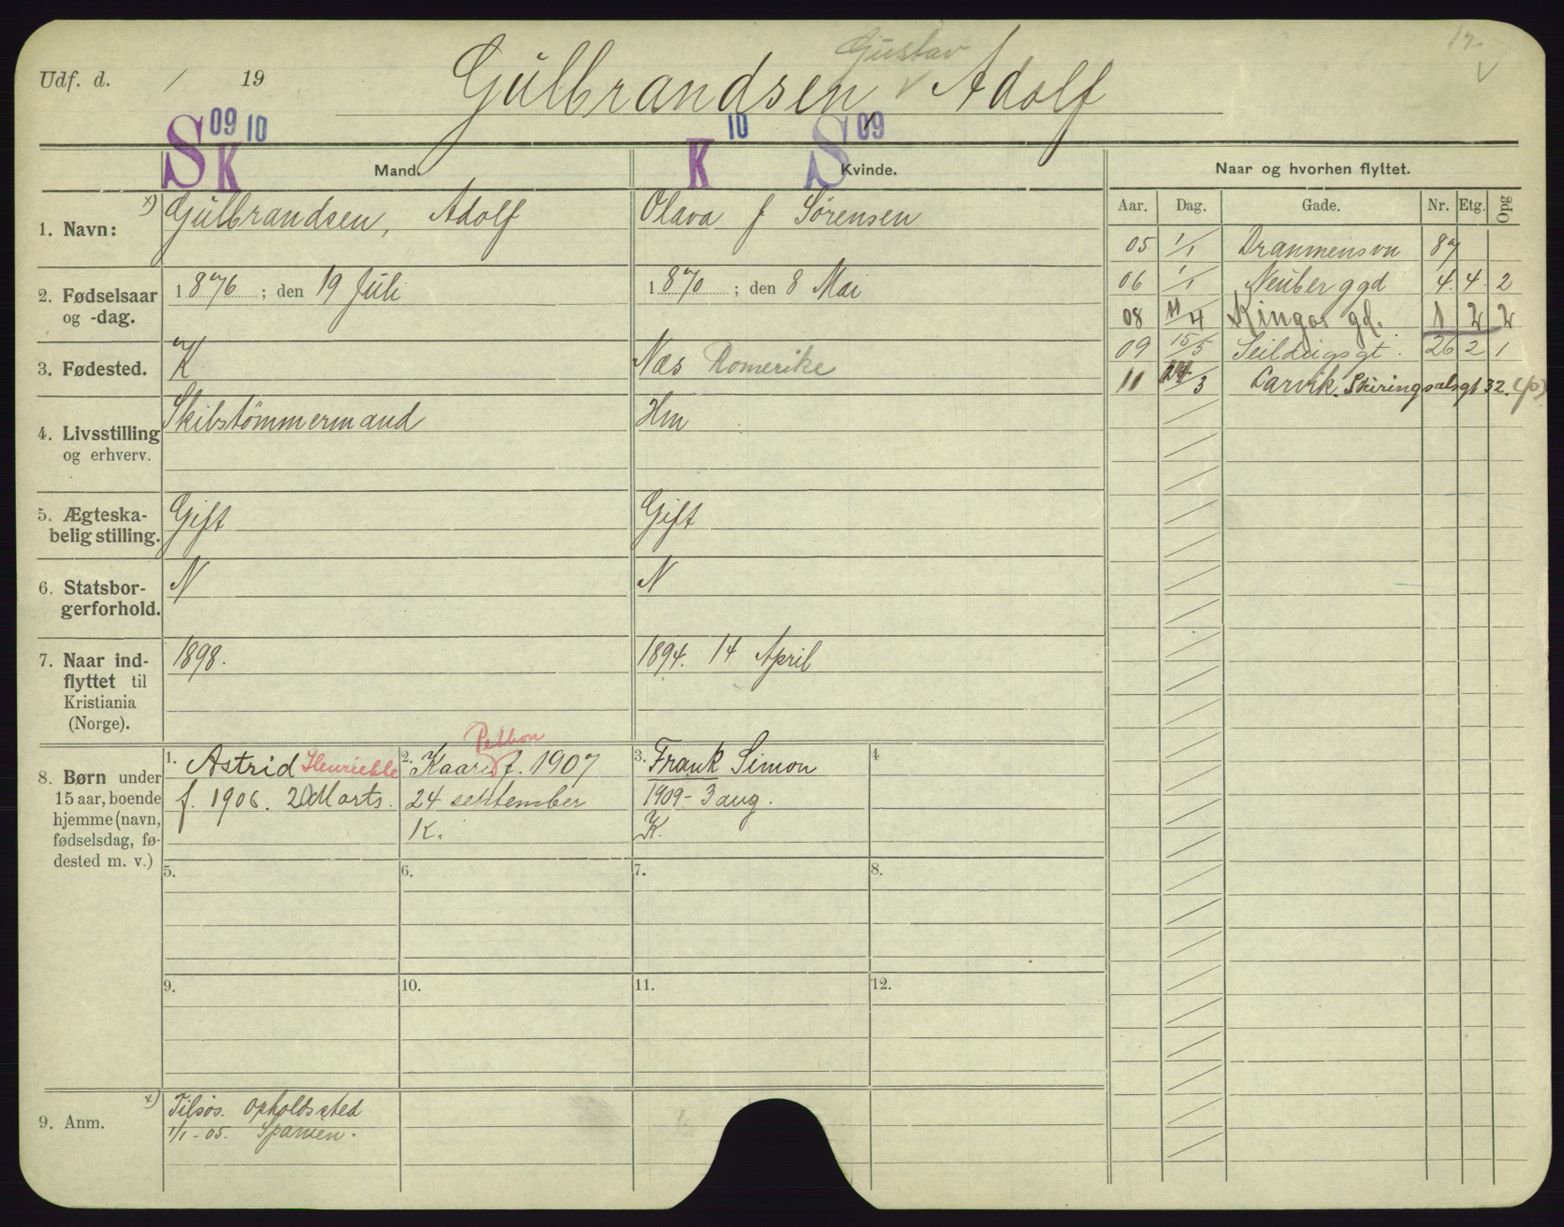 Udf. d. / 19
Gulbrandsen, Gustav Adolf
12
S 09 K 10
K 10 S 09
Mand.
Kvinde.
Naar og hvorhen flyttet.
Aar. Dag. Gade. Nr. Etg. Opg
1. Navn:
x) Gulbrandsen, Adolf
Olava f Sørensen
2. Fødselsaar
og -dag.
1876 ; den 19 Juli
1870 ; den 8 Mai
3. Fødested.
K
Næs Romerike
4. Livsstilling
og erhverv.
Skibstømmermand
Hm
5. Ægteska-
belig stilling.
Gift
Gift
6. Statsbor-
gerforhold.
N
N
7. Naar ind-
flyttet til
Kristiania
(Norge).
1898.
1894. 14 April
8. Børn under
15 aar, boende
hjemme (navn,
fødselsdag, fø-
dested m. v.)
1. Astrid Henriette
f. 1906. 20 Marts.
2. Kaare Petton f. 1907
24 september
K.
3. Frank Simon
1909 - 3 aug.
K.
4
5.
6.
7.
8.
9.
10.
11.
12.
9. Anm.
x) Tilsøs. Opholdssted
1/1 - 05. Spanien.
05 1/1 Drammensvn 87
06 1/1 Neuberggd 4. 4. 2
08 11/4 Kingos gd. 1 2 2
09 15/5 Seildugsgt. 26 2 1
11 24/3 Larvik. Skiringsalsgt 32. (p)